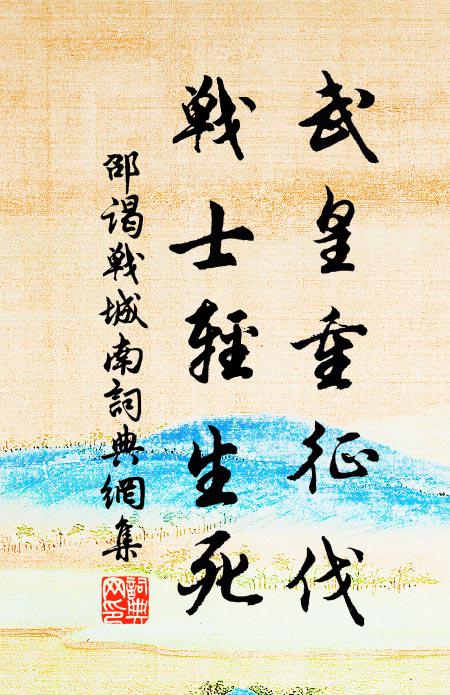 武皇重征伐
戰士輕生死
邵謁戰城南詞典網集
詞典網印